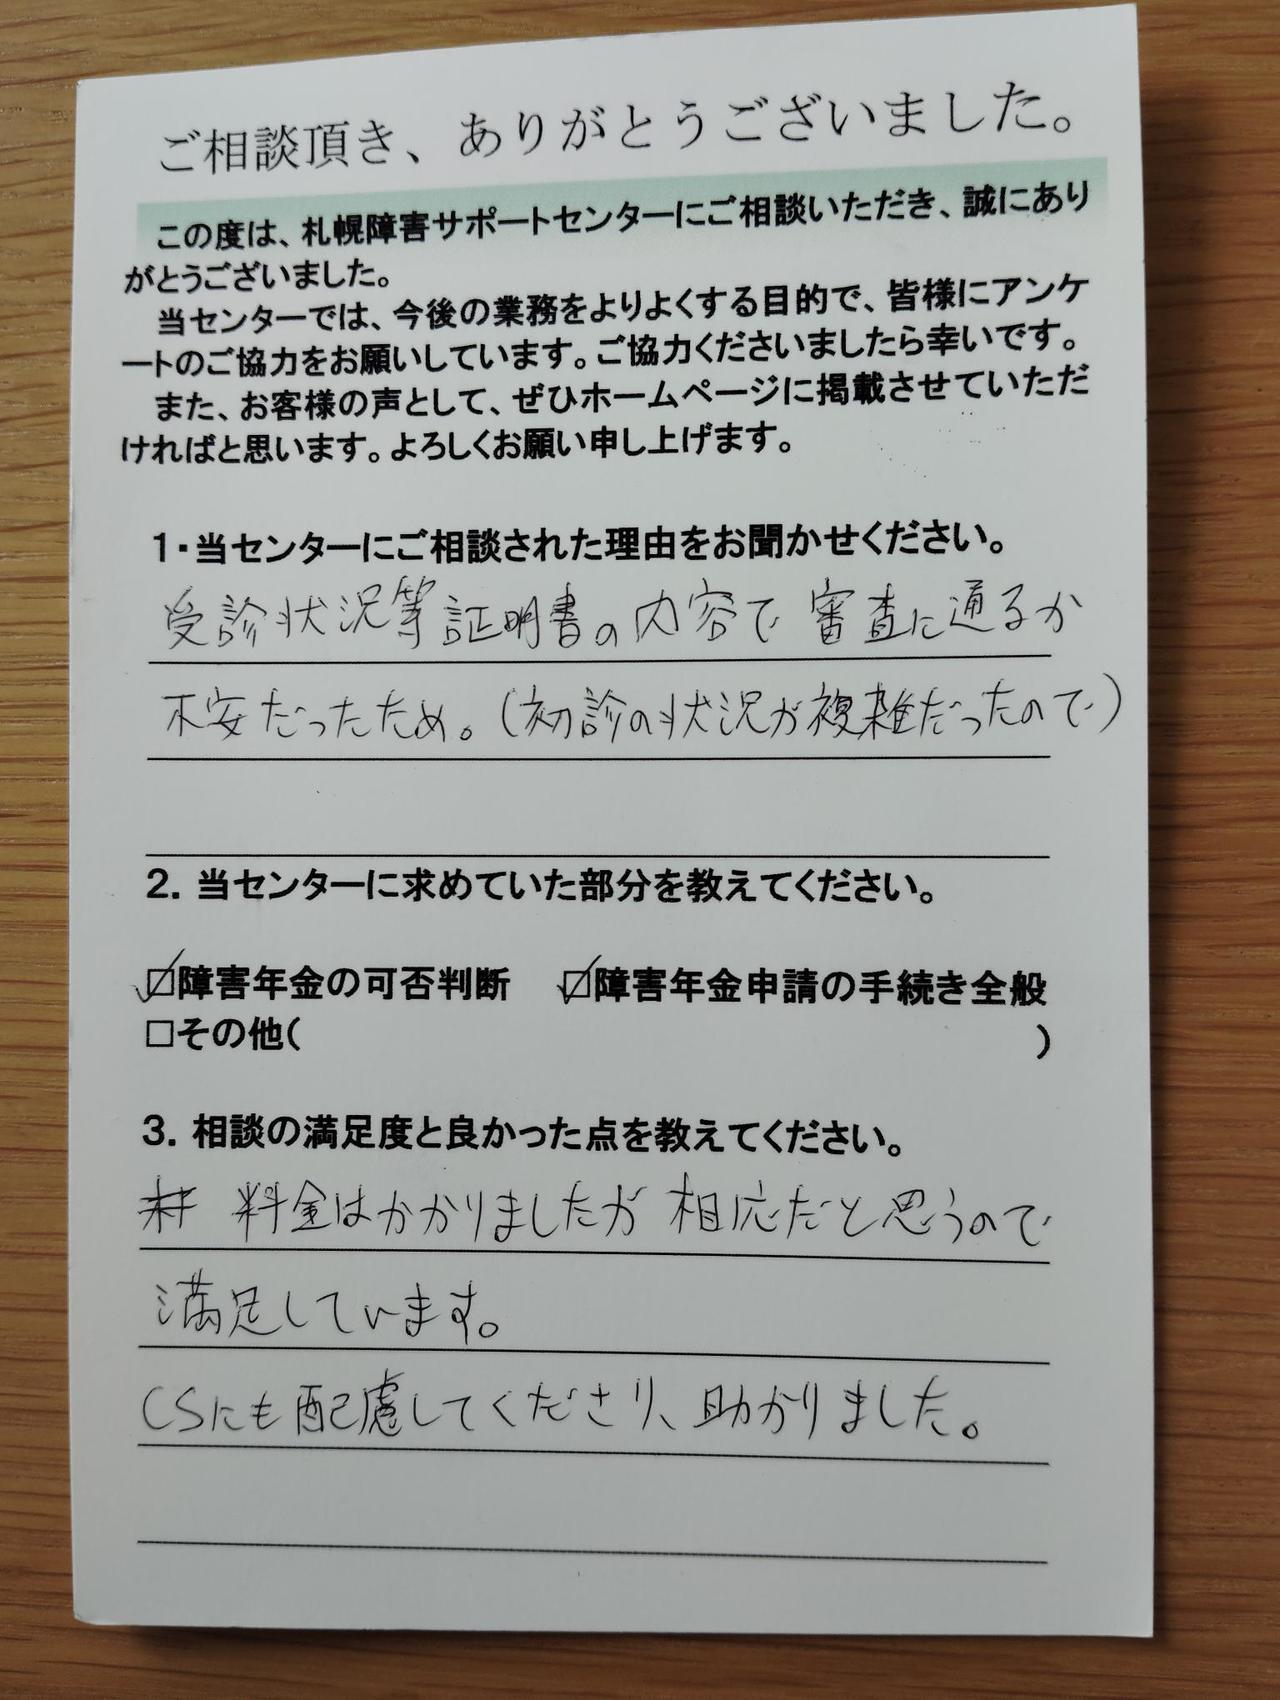 ご相談頂き、ありがとうございました。
この度は、札幌障害サポートセンターにご相談いただき、誠にあり
がとうございました。
当センターでは、今後の業務をよりよくする目的で、皆様にアンケ
ートのご協力をお願いしています。ご協力くださいましたら幸いです。
また、お客様の声として、ぜひホームページに掲載させていただ
ければと思います。よろしくお願い申し上げます。
1・当センターにご相談された理由をお聞かせください。
受診状況等証明書の内容で審査に通るか
不安だったため。(初診の状況が複雑だったので)
2. 当センターに求めていた部分を教えてください。
☑障害年金の可否判断 ☑障害年金申請の手続き全般
□その他( )
3. 相談の満足度と良かった点を教えてください。
料金はかかりましたが相応だと思うので
満足しています。
CSにも配慮してくださり、助かりました。